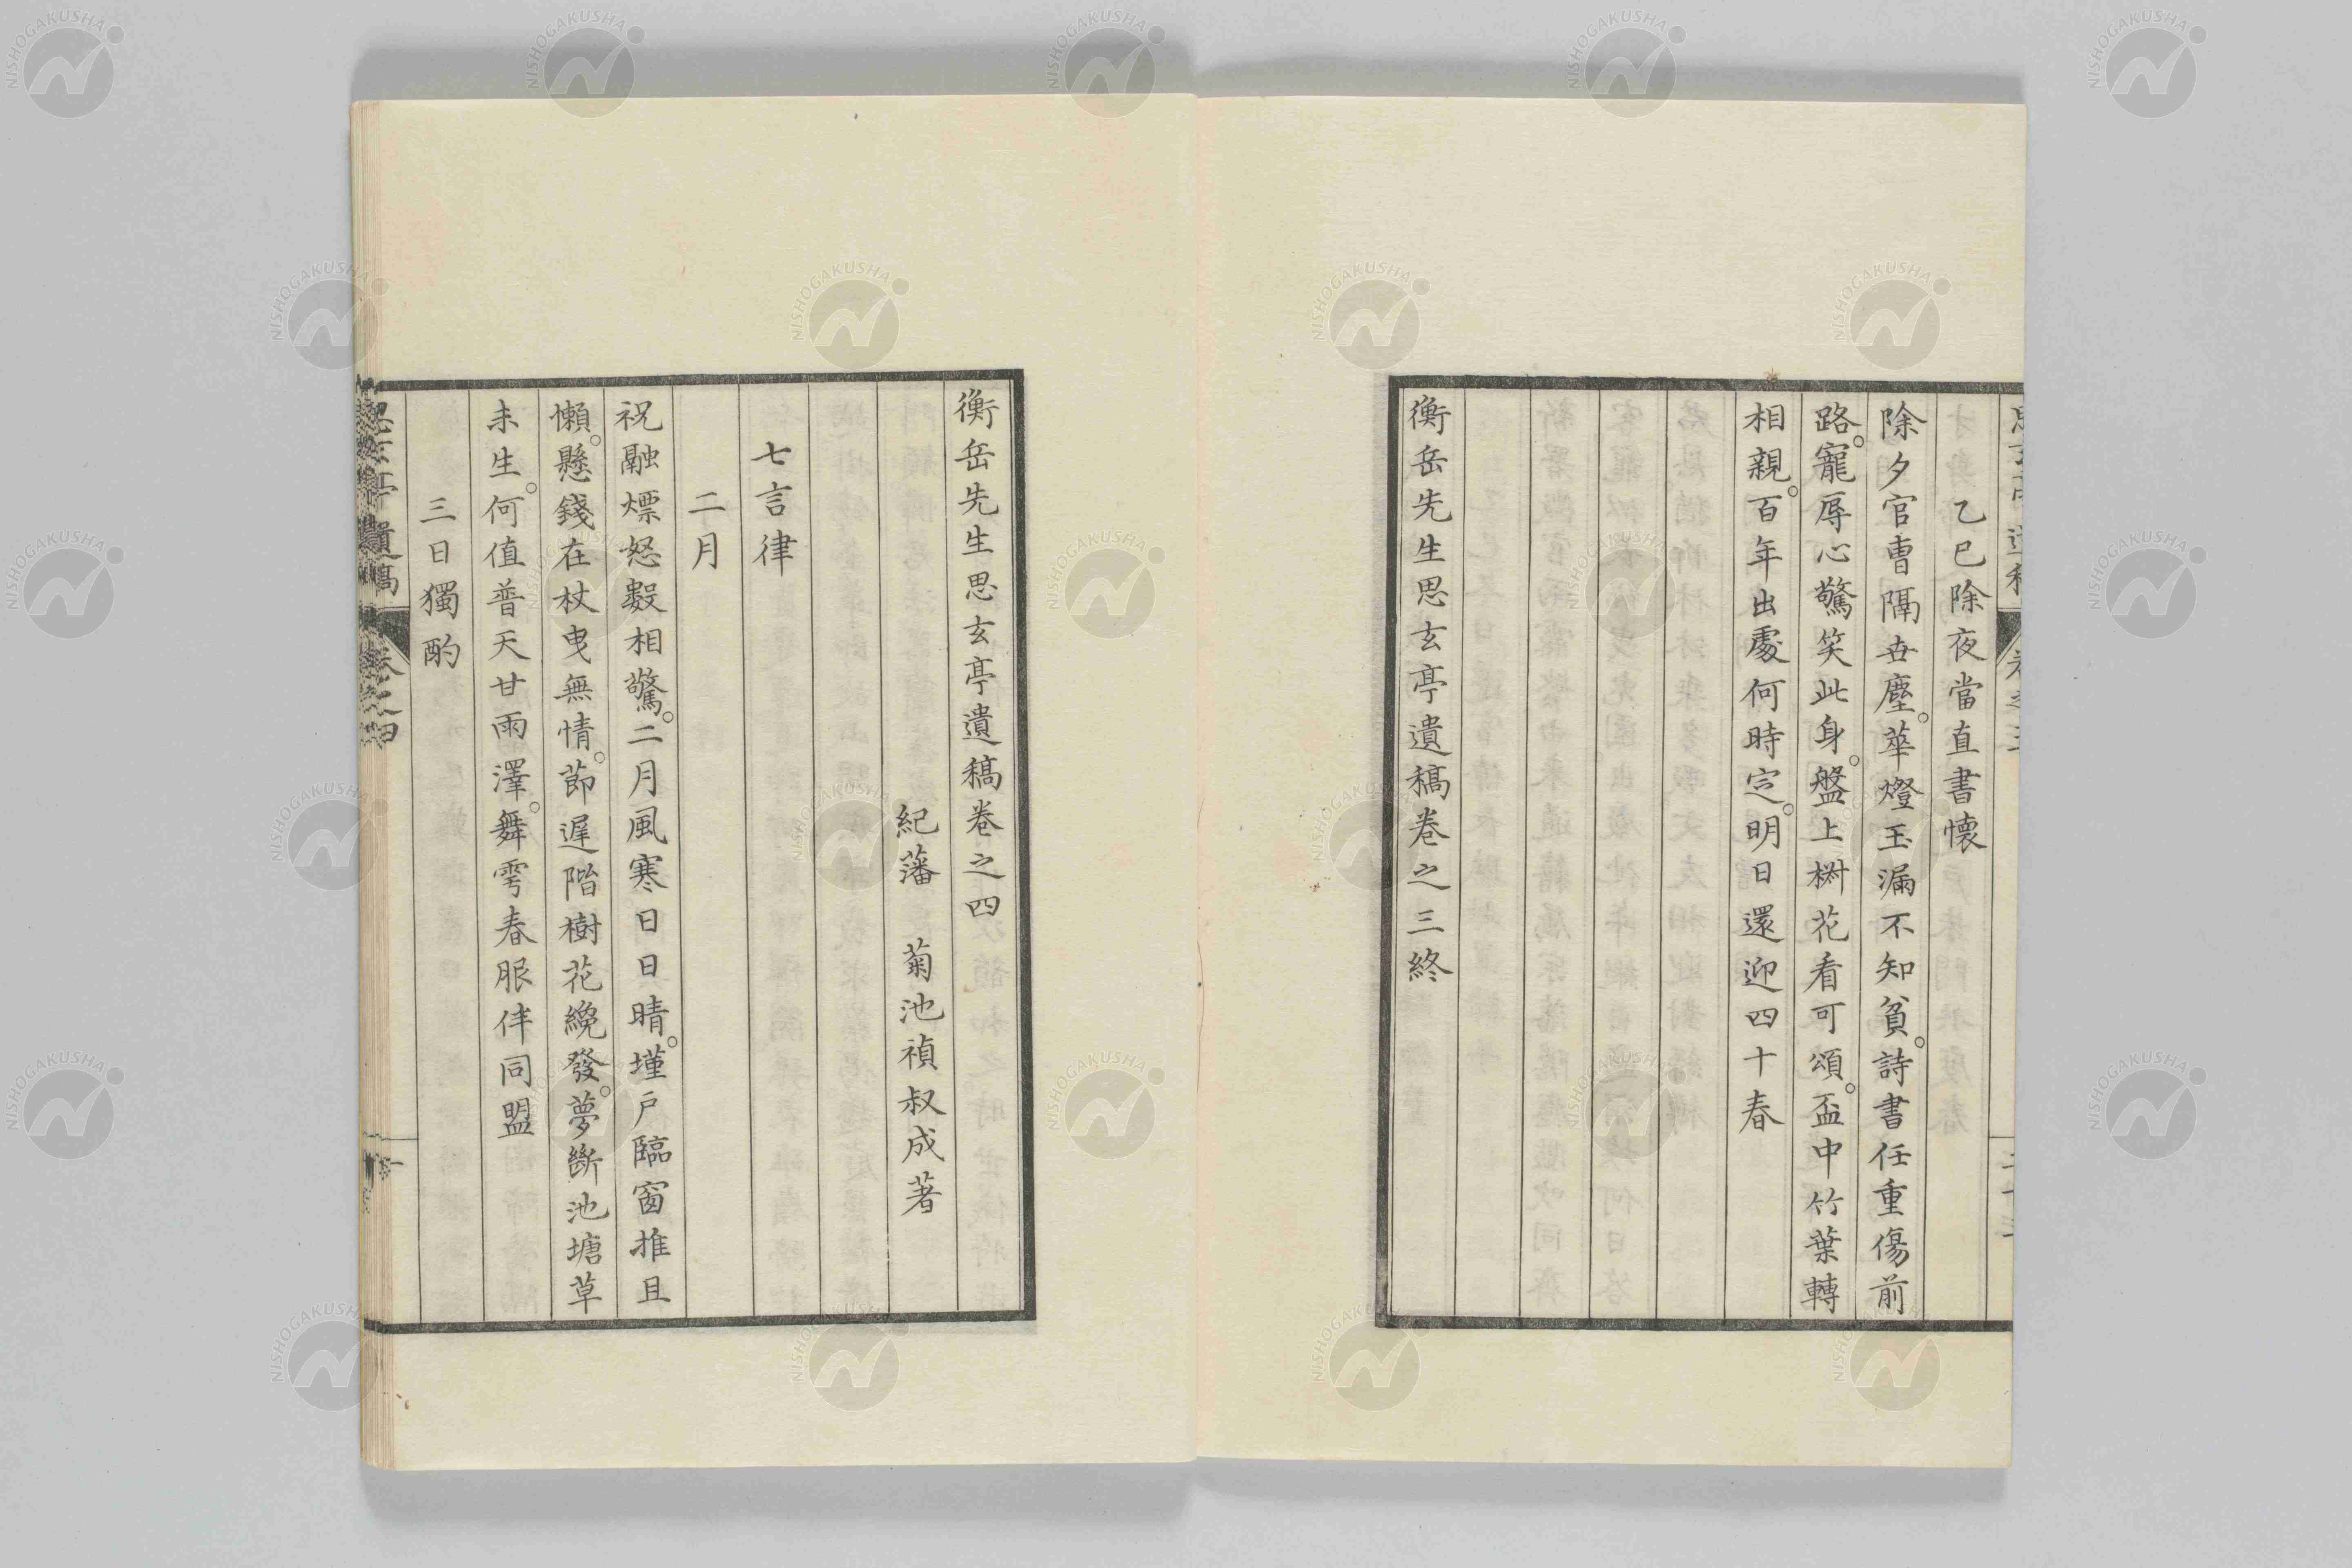 乙巳除夜當直書懷
除夕官曹隔世塵。華燈玉漏不知貧。詩書任重傷前
路。寵辱心驚笑此身。盤上椒花看可頌。盃中竹葉轉
相親。百年出處何時定。明日還迎四十春
衡岳先生思玄亭遺稿卷之三終
衡岳先生思玄亭遺稿卷之四
紀藩 菊池禎叔成著
七言律
二月
祝融熛怒數相驚。二月風寒日日晴。墐戶臨窗推且
懶。懸錢在杖曳無情。節遲階樹花纔發。夢斷池塘草
未生。何值普天甘雨澤。舞雩春服伴同盟
三日獨酌
思玄亭遺稿 卷之四 一
NISHOGAKUSHA